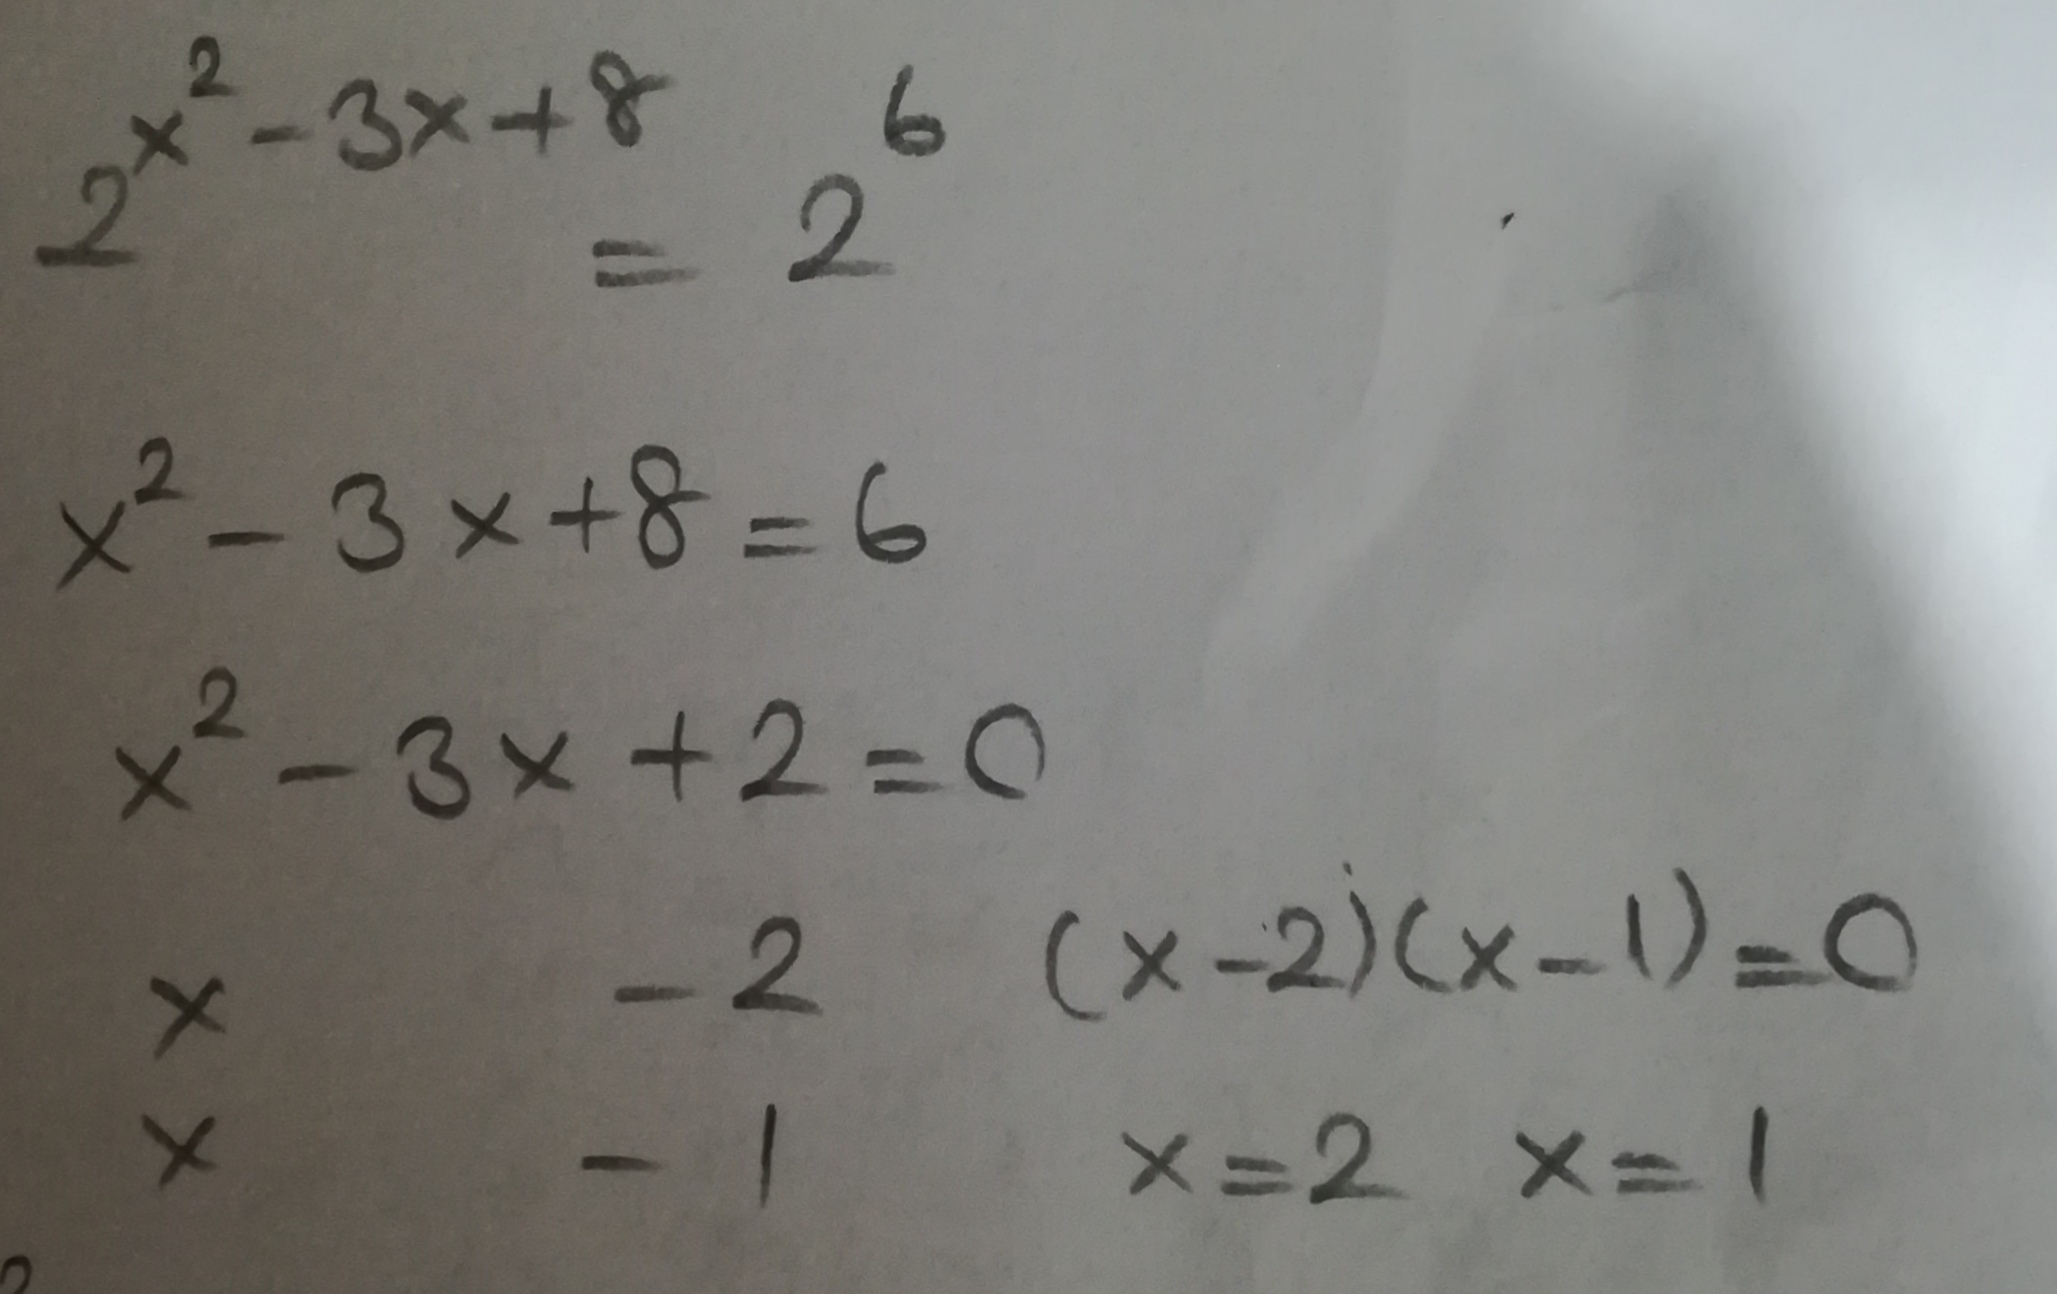 2^{x^2 - 3x + 8} = 2^6
x^2 - 3x + 8 = 6
x^2 - 3x + 2 = 0
x - 2 (x - 2)(x - 1) = 0
x - 1 x = 2 x = 1